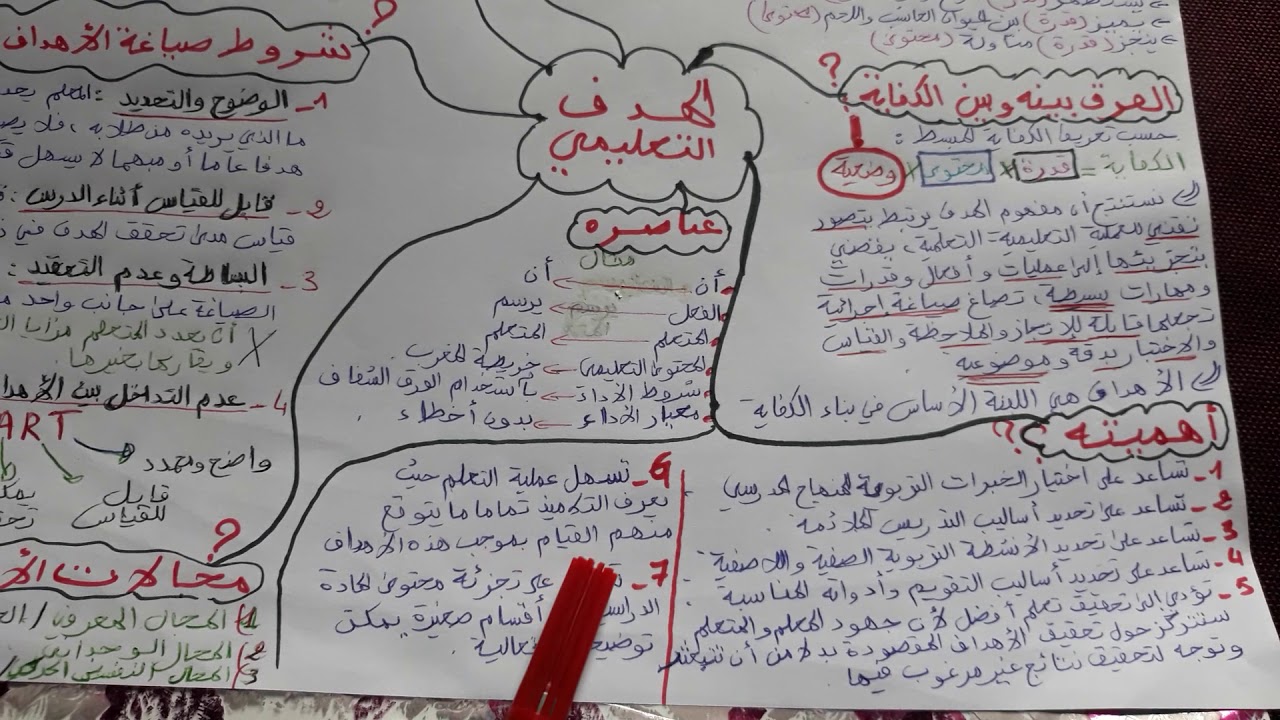 يميز (قدرة) بين حيوان العاشب واللاحم (محتوى)
ينجز (قدرة) مناولة (محتوى)
الهدف
التعليمي
الفرق بينه وبين الكفاية ?
حسب تعريف الكفاية المبسط :
الكفاية = قدرة × محتوى × وضعية
نستنتج أن مفهوم الهدف يرتبط بتصور
تقني للعملية التعليمية - التعلمية، يفضي
بتجزيئها إلى عمليات وأفعال وقدرات
ومهارات بسيطة، تصاغ صياغة إجرائية
تجعلها قابلة للإنجاز والملاحظة والقياس
والاختبار بدقة وموضوعية
الأهداف هي اللبنة الأساس في بناء الكفاية
عناصره
مثال
أن ← أن
الفعل ← يرسم
المتعلم ← المتعلم
المحتوى التعليمي ← خريطة المغرب
شروط الأداء ← باستخدام الورق الشفاف
معيار الأداء ← بدون أخطاء .
أهميته ؟?
1- تساعد على اختيار الخبرات التربوية للمنهاج المدرسي
2- تساعد على تحديد أساليب التدريس الملائمة .
3- تساعد على تحديد الأنشطة التربوية الصفية واللاصفية
4- تساعد على تحديد أساليب التقويم وأدواته المناسبة .
5- تؤدي إلى تحقيق تعلم أفضل لأن جهود المعلم والمتعلم
ستتركز حول تحقيق الأهداف المقصودة بدلا من أن تتشتت
وتوجه لتحقيق نتائج غير مرغوب فيها
6- تسهل عملية التعلم حيث
يعرف التلاميذ تماما ما يتوقع
منهم القيام بموجب هذه الأهداف
7- على تجزئة محتوى المادة
أقسام صغيرة يمكن
شروط صياغة الأهداف ?
1- الوضوح والتحديد : المعلم
ما الذي يريده من طلابه ، فلا
هدفا عاما أو مبهما لا يسهل
2- قابل للقياس أثناء الدرس :
قياس مدى تحقق الهدف في
3- البساطة وعدم التعقيد :
الصياغة على جانب واحد
X أن يعدد المتعلم مزايا
ويقارنها بغيرها.
4- عدم التداخل بين
ART
واضح ومحدد
قابل
للقياس
مجالات ?
1) المجال المعرفي /
2) المجال الوجداني
3) المجال النفسي الحركي /